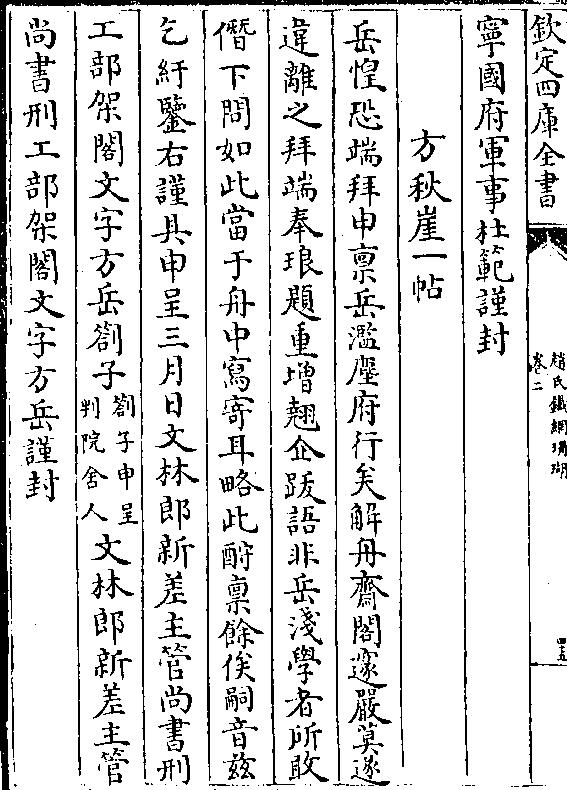 欽定四庫全書
趙氏鐵網珊瑚
卷二
四五
寧國府軍事杜範謹封
方秋崖一帖
岳惶恐端拜申禀岳濫塵府行矣解舟齋閣邃嚴莫遂
違離之拜端奉琅題重增翹企跋語非岳淺學者所敢
僭下問如此當于舟中寫寄耳略此酧禀餘俟嗣音兹
乞紆鑒右謹具申呈三月日文林郎新差主管尚書刑
工部架閣文字方岳劄子劄子申呈判院舍人文林郎新差主管
尚書刑工部架閣文字方岳謹封